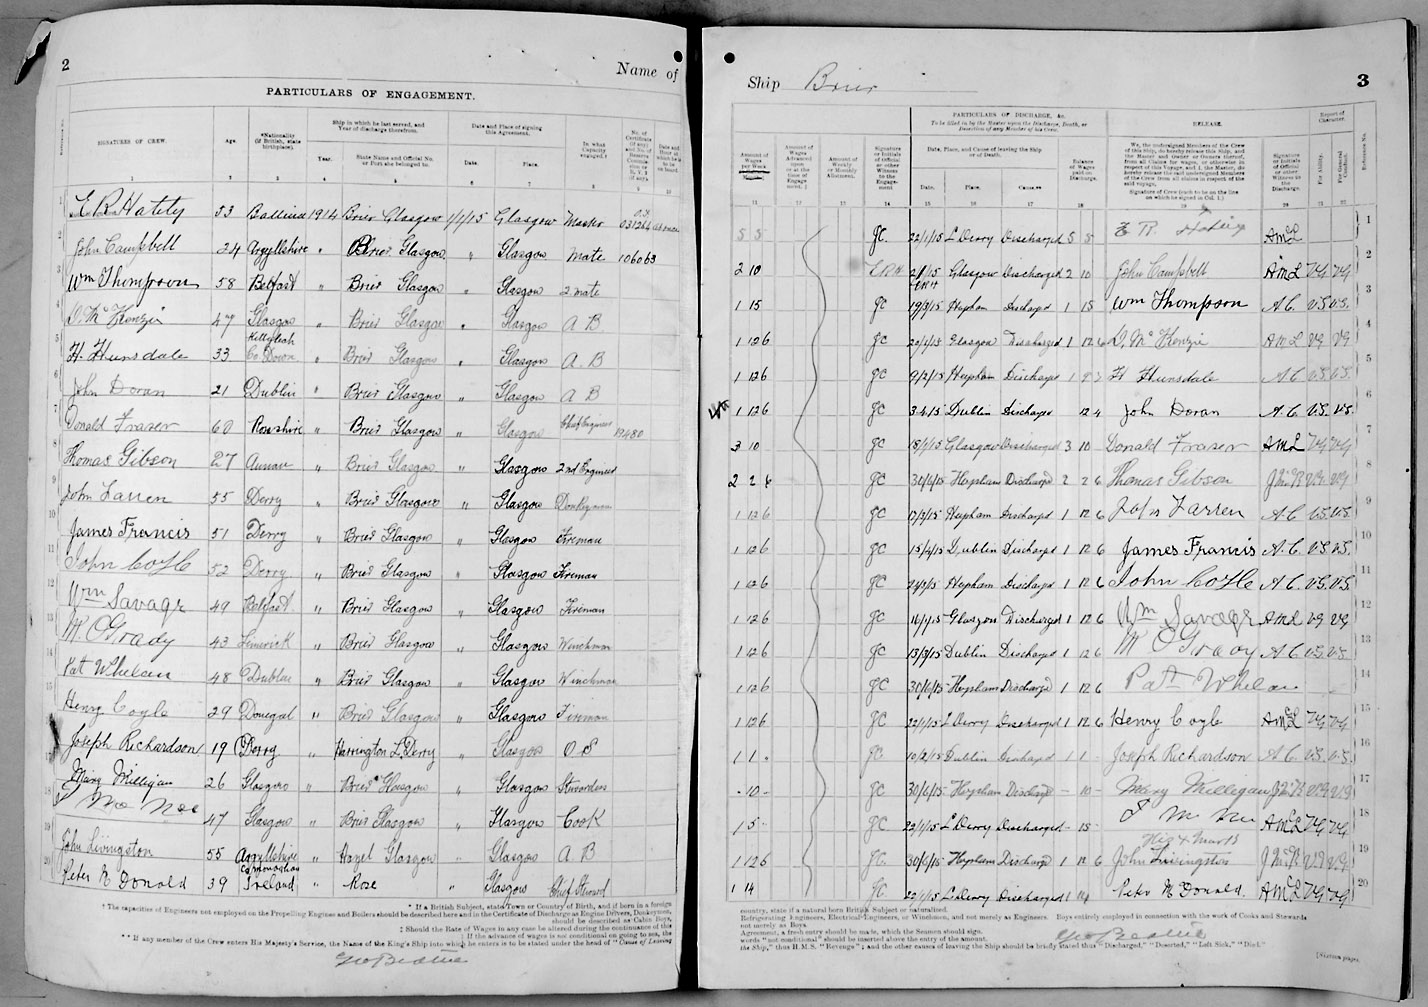 2
Name of
PARTICULARS OF ENGAGEMENT.
SIGNATURES OF CREW.
Age
*Nationality (if British, state birthplace).
Ship in which he last served, and Year of discharge therefrom.
Year.
State Name and Official No. or Port she belonged to.
Date and Place of signing this Agreement.
Date.
Place.
In what Capacity engaged.†
1 2 3 4 5 6 7 8 9 10
53 Ballina 1914 Brier Glasgow 1/1/15 Glasgow Master
John Campbell 24 Argyllshire " Brier Glasgow " Glasgow Mate 106063
Wm Thompson 58 Belfast " Brier Glasgow " Glasgow 2 mate
D. McKenzie 47 Glasgow " Brier Glasgow " Glasgow A B
H. Hunsdale 33 Killyleah Co Down " Brier Glasgow " Glasgow A. B
John Doran 21 Dublin " Brier Glasgow " Glasgow A B
Donald Fraser 60 Rosshire " Brier Glasgow " Glasgow Chief Engineer 19480
Thomas Gibson 27 Annan " Brier Glasgow " Glasgow 2nd Engineer
John Larren 55 Derry " Brier Glasgow " Glasgow Donkeyman
James Francis 51 Derry " Brier Glasgow " Glasgow Fireman
John Coyle 52 Derry " Brier Glasgow " Glasgow Fireman
Wm Savage 49 Belfast " Brier Glasgow " Glasgow Fireman
M. O'Grady 43 Limerick " Brier Glasgow " Glasgow Winchman
Pat Whelan 48 Dublin " Brier Glasgow " Glasgow Winchman
Henry Coyle 29 Donegal " Brier Glasgow " Glasgow Fireman
Joseph Richardson 19 Derry " Harrington L'Derry " Glasgow O. S
Mary Milligan 26 Glasgow " Brier Glasgow " Glasgow Stewardess
47 Glasgow " Brier Glasgow " Glasgow Cook
John Livingston 55 Argyllshire " Hazel Glasgow " Glasgow A. B
Peter McDonald 39 Ireland " Rose " Glasgow Chief Steward
* If a British Subject, state Town or Country of Birth, and if born in a foreign
† The capacities of Engineers not employed on the Propelling Engines and Boilers should be described here and in the Certificate of Discharge as Engine Drivers, Donkeymen,
should be described as Cabin Boys,
‡ Should the Rate of Wages in any case be altered during the continuance of this
‖ If the advance of wages is not conditional on going to sea, the
** If any member of the Crew enters His Majesty's Service, the Name of the King's Ship into which he enters is to be stated under the head of "Cause of Leaving
Ship Brier
3
PARTICULARS OF DISCHARGE, &c.
To be filled in by the Master upon the Discharge, Death, or Desertion of any Member of his Crew.
RELEASE.
Report of Character.
Amount of Wages per Week
Amount of Wages Advanced upon or at the time of Engagement. ‡
Amount of Weekly or Monthly Allotment.
Signature or Initials of Official or other Witness to the Engagement
Date, Place, and Cause of leaving the Ship or of Death.
Date.
Place.
Cause.**
Balance of Wages paid on Discharge.
We, the undersigned Members of the Crew of this Ship, do hereby release this Ship, and the Master and Owner or Owners thereof, from all Claims for Wages, or otherwise in respect of this Voyage, and I, the Master, do hereby release the undersigned Members of the Crew from all claims in respect of the said voyage.
Signature of Crew (each to be on the line on which he signed in Col. 1.)
Signature or Initials of Official or other Witness to the Discharge.
For Ability.
For General Conduct.
Reference No.
11 12 13 14 15 16 17 18 19 20 21 22
5 5 JC 22/1/15 L'Derry Discharged 5 5 AMcL 1
2 10 Glasgow Discharged 2 10 John Campbell AMcL VG VG 2
1 15 JC 19/3/15 Heysham Discharged 1 15 Wm Thompson A.C. V.G. V.G. 3
1 12 6 JC Glasgow Discharged 1 12 6 D. McKenzie AMcL VG VG 4
1 12 6 JC 9/2/15 Heysham Discharge H Hunsdale A.C. V.G. V.G. 5
1 12 6 JC Dublin Discharged 12 4 John Doran A.C. V.G. V.G. 6
3 10 JC Glasgow Discharged 3 10 Donald Fraser AMcL VG VG 7
2 2 6 JC 30/6/15 Heysham Discharged 2 2 6 Thomas Gibson VG VG 8
1 12 6 JC Heysham Discharged 1 12 6 John Larren A.C. V.G. V.G. 9
1 12 6 JC 15/2/15 Dublin Discharged 1 12 6 James Francis A.C. V.G. V.G. 10
1 12 6 JC Heysham Discharged 1 12 6 John Coyle A.C. V.G. V.G. 11
1 12 6 JC 16/1/15 Glasgow Discharged 1 12 6 Wm Savage AMcL VG VG 12
1 12 6 JC 13/3/15 Dublin Discharged 1 12 6 M O'Grady A.C. V.G. V.G. 13
1 12 6 JC 30/6/15 Heysham Discharged 1 12 6 Pat Whelan 14
1 12 6 JC 22/1/15 L'Derry Discharged 1 12 6 Henry Coyle AMcL VG VG 15
1 1 " JC 10/2/15 Dublin Discharged 1 1 - Joseph Richardson A.C. V.G. V.G. 16
- 10 - JC 30/6/15 Heysham Discharge - 10 - Mary Milligan VG VG 17
1 5 - JC 22/1/15 L'Derry Discharged - 15 - AMcL VG VG 18
His X Mark
1 12 6 JC 30/6/15 Heysham Discharge 1 12 6 John Livingston VG VG 19
1 14 JC 22/1/15 L'Derry Discharged 1 14 Peter McDonald AMcL VG VG 20
country, state if a natural born British Subject or naturalized.
Refrigerating Engineers, Electrical Engineers, or Winchmen, and not merely as Engineers. Boys entirely employed in connection with the work of Cooks and Stewards
not merely as Boys.
Agreement, a fresh entry should be made, which the Seamen should sign.
words "not conditional" should be inserted above the entry of the amount.
the Ship," thus H.M.S. "Revenge"; and the other causes of leaving the Ship should be briefly stated thus "Discharged," "Deserted," "Left Sick," "Died."
[Sixteen pages.